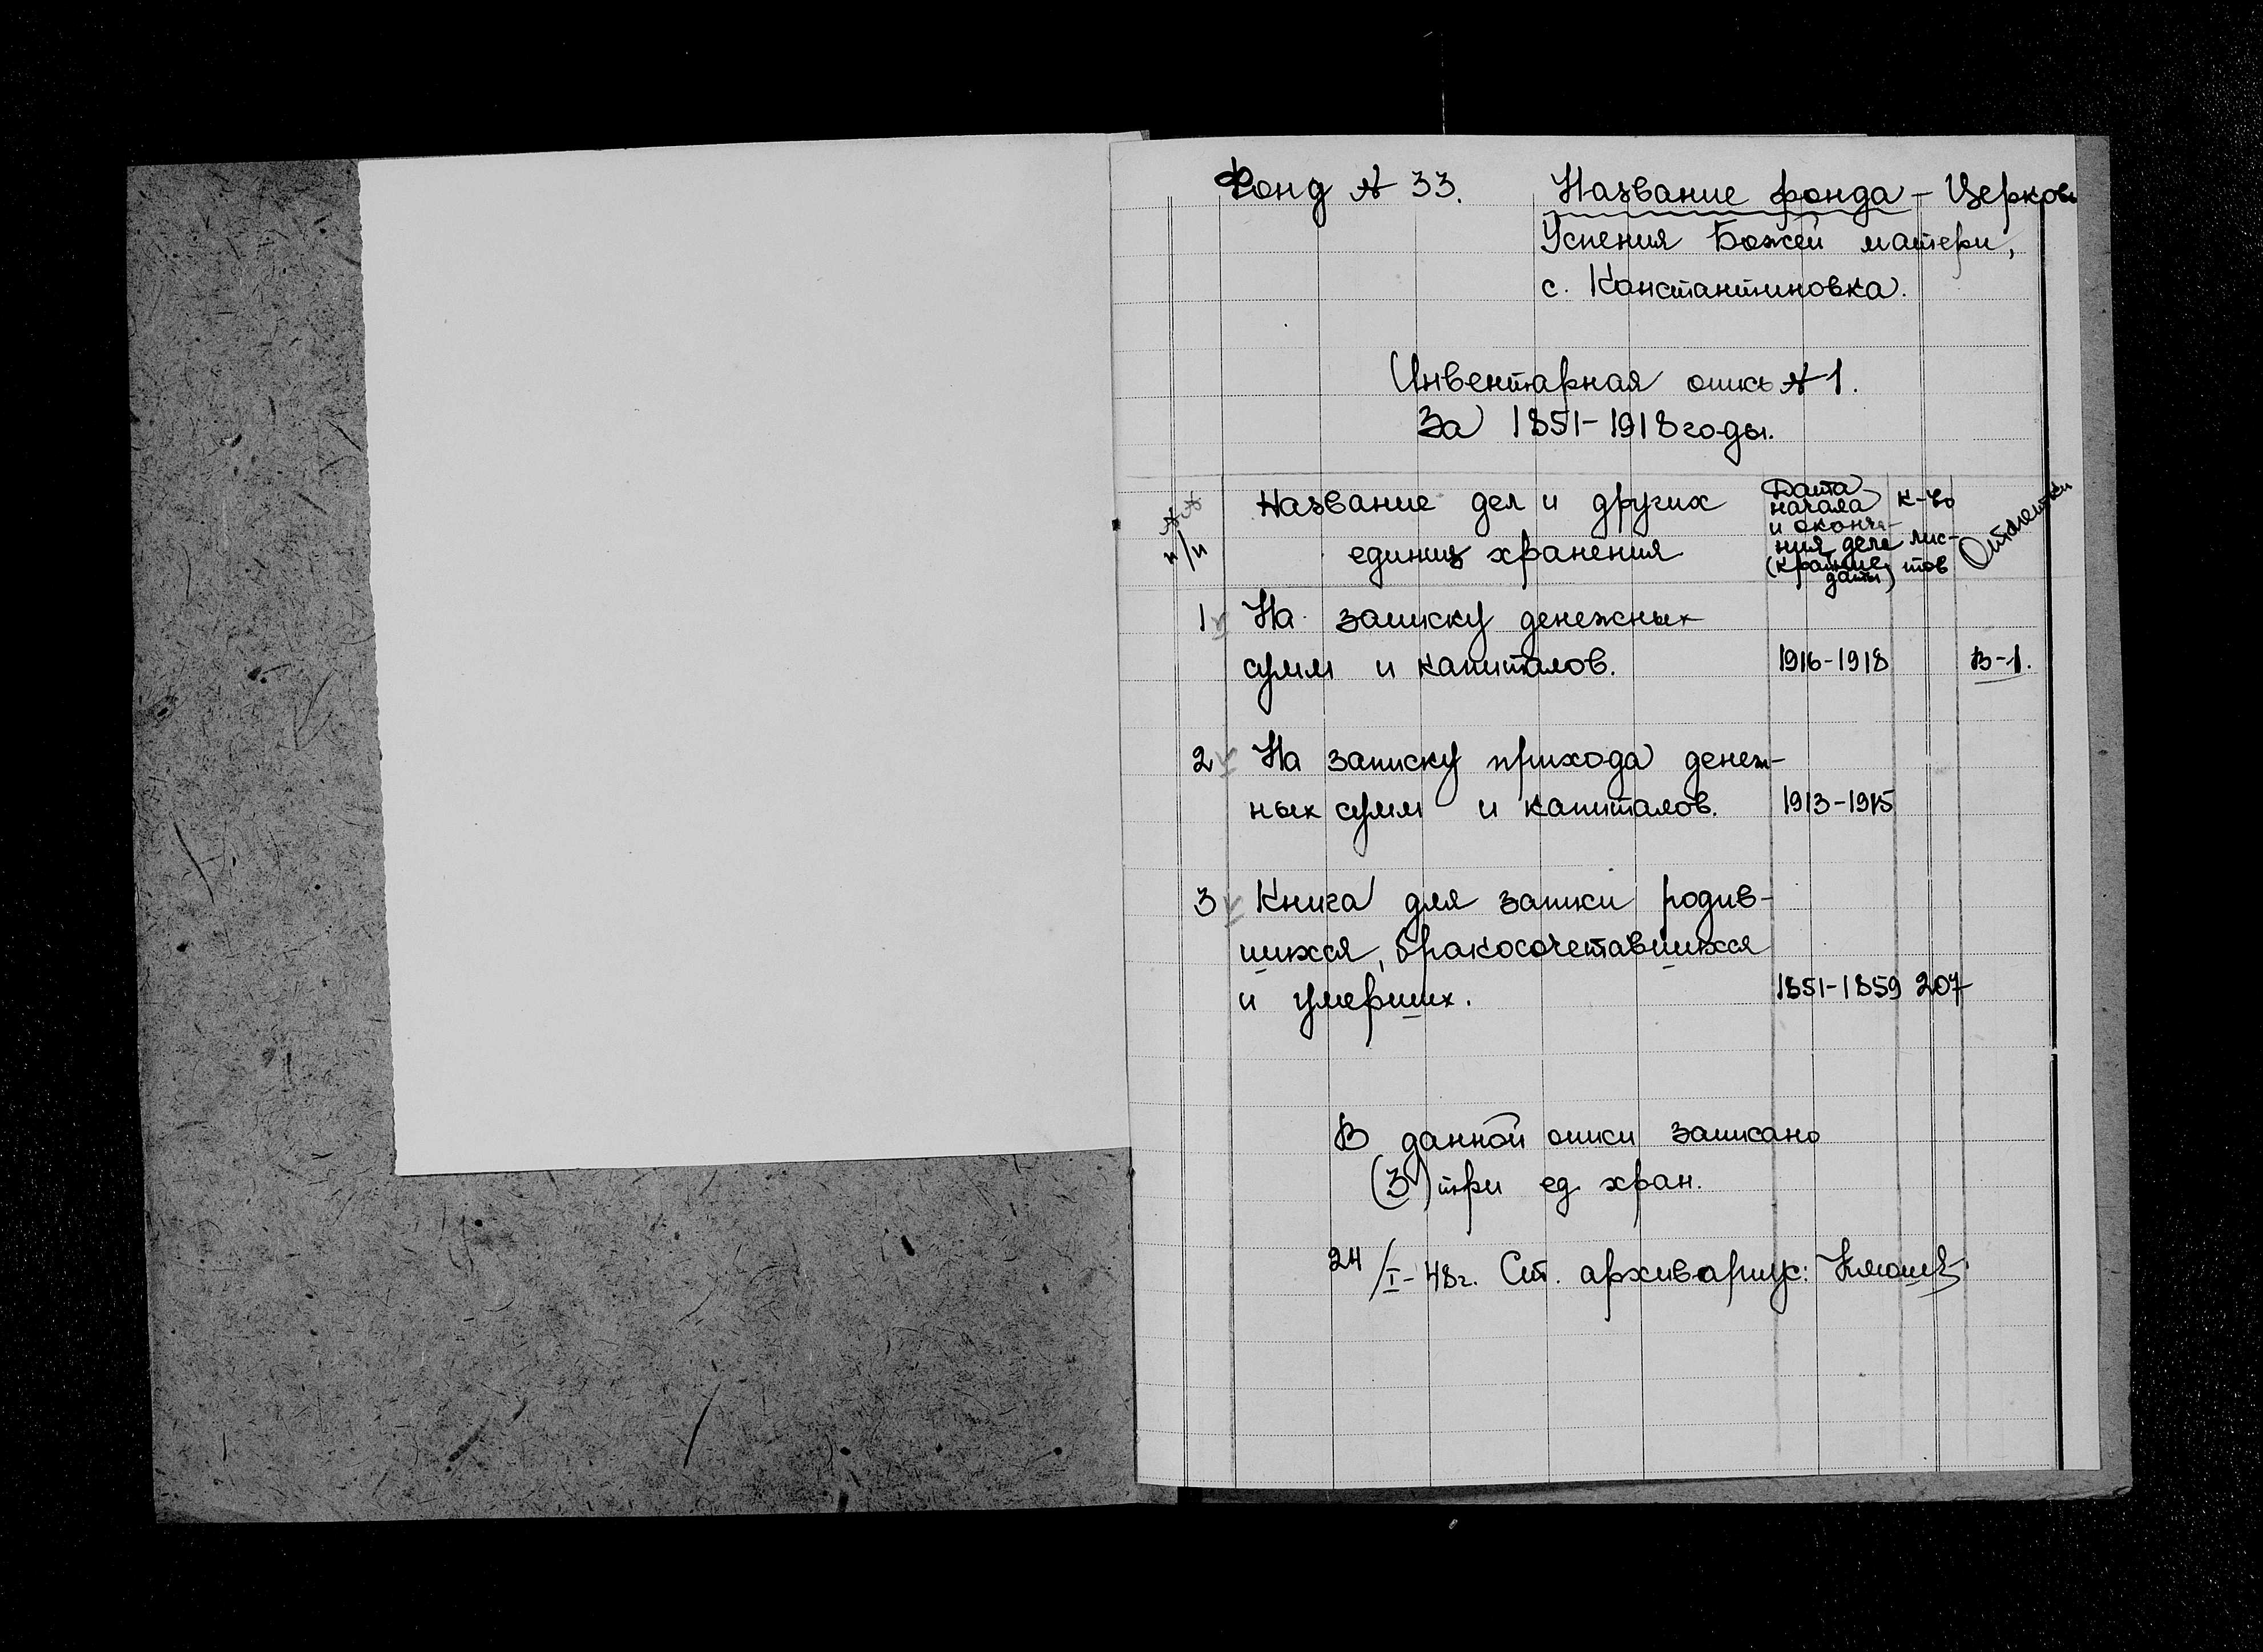 Фонд № 33. Название фонда - Церковь
Успения Божей матери,
с. Константиновка.
Инвентарная опись № 1.
За 1851-1918 годы.
№№ п/п
Название дел и других
единиц хранения
Дата
начала
и оконча-
ния дела
(крайние
даты)
к-во
лис-
тов
1 На записку денежных
сумм и капиталов. 1916-1918 В-1.
2 На записку прихода денеж-
ных сумм и капиталов. 1913-1915
3 Книга для записи родив-
шихся, бракосочетавшихся
и умерших. 1851-1859 207
В данной описи записано
(3) три ед. хран.
24/I-48г. Ст. архивариус: